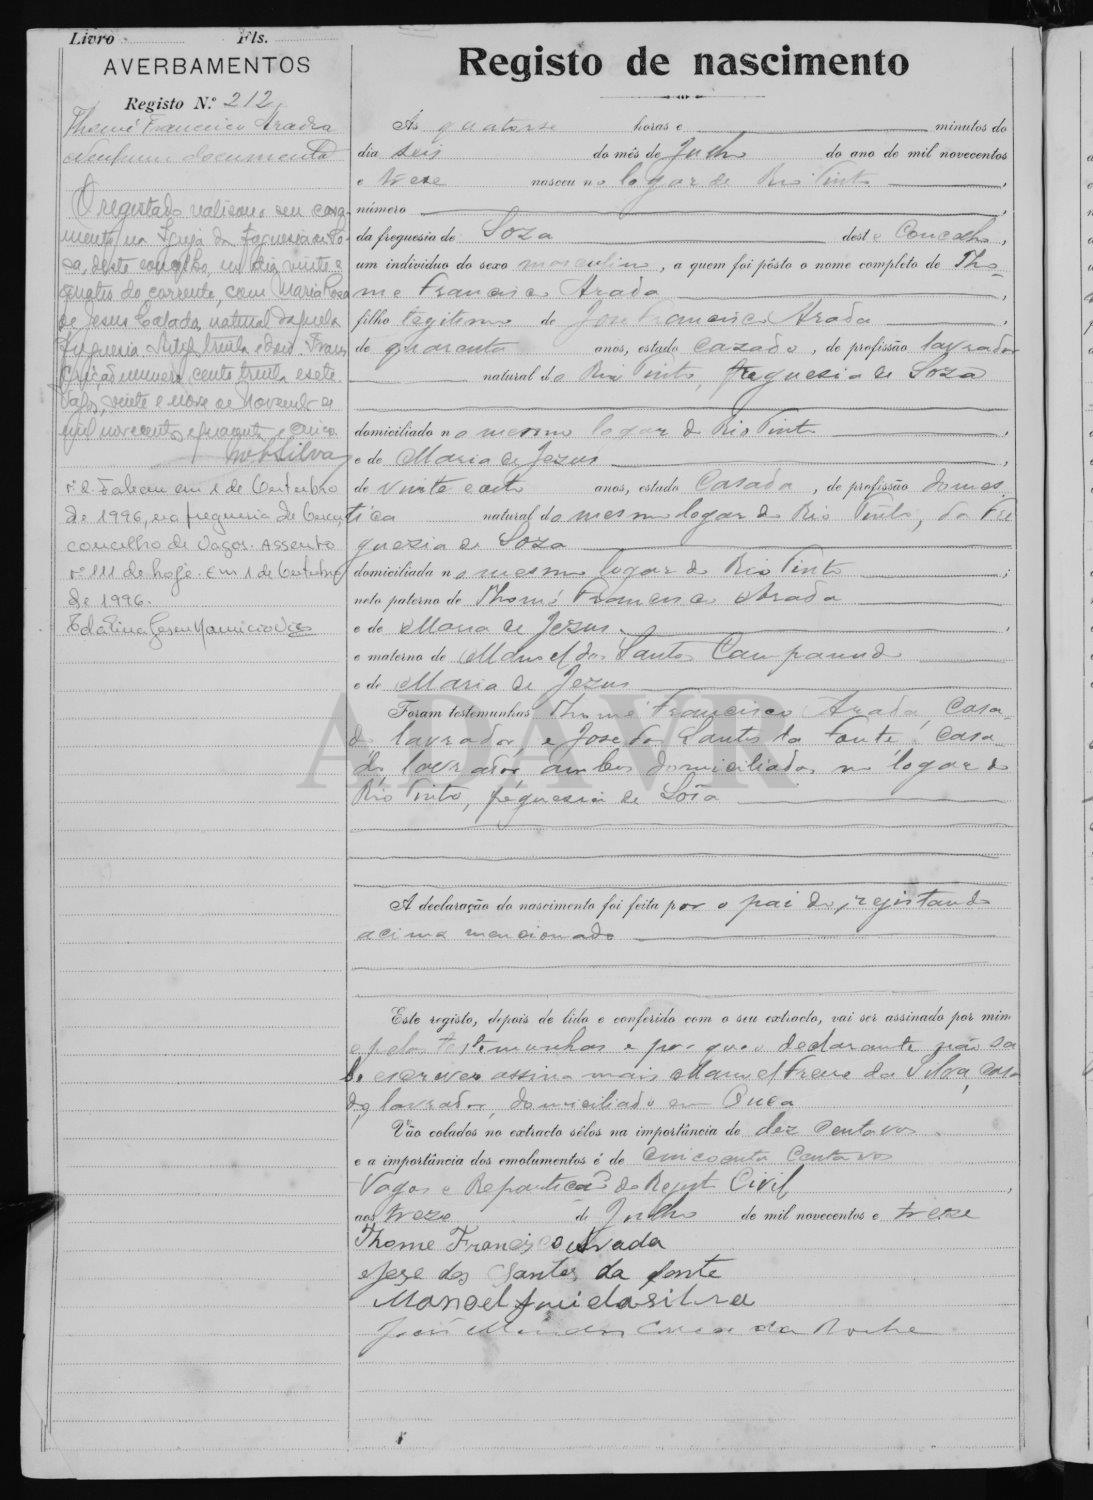 Livro Fls.
AVERBAMENTOS
Registo N.º 212
Thomé Francisco Arada
Nenhum documento
O registado realisou o seu casa-
mento na Igreja da freguesia de So-
sa, deste concelho, no dia vinte e
quatro do corrente, com Maria Rosa
de Jesus Calada, natural daquela
freguesia trinta e dois. Trans-
crição numero cento trinta e sete.
Vagos, vinte e nove de Novembro de
mil novecentos e quarenta e cinco
Silva
n.º 2. Faleceu em 1 de Outubro
de 1996, na freguesia de
concelho de Vagos. Assento
nº 111 de hoje. Em 1 de Outubro
de 1996.
Registo de nascimento
Ás quatorse horas e minutos do
dia seis do mês de Julho do ano de mil novecentos
e treze nasceu no logar de Rio Tinto
número
da freguesia de Soza deste Concelho,
um indivíduo do sexo masculino, a quem foi pôsto o nome completo de Tho-
me Francisco Arada
filho legitimo de Jose Francisco Arada
de quarenta anos, estado cazado, de profissão lavrador
natural do Rio Tinto, freguesia de Soza
domiciliado no mesmo logar do Rio Tinto
e de Maria de Jezus
de vinte e oito anos, estado Casada, de profissão domes-
tica natural do mesmo logar do Rio Tinto, da fre
guezia de Soza
domiciliada no mesmo logar do Rio Tinto
neto paterno de Thomé Francisco Arada
e de Maria de Jezus
e materno de Manoel dos Santos Campanudo
e de Maria de Jezus
Foram testemunhas Thomé Francisco Arada, casa-
do, lavrador, e Jose dos Santos da Fonte, casa-
do, lavrador, ambos domiciliados no logar do
Rio Tinto, freguesia de Soza
ADAVR
A declaração do nascimento foi feita por o pai do registando
acima mencionado
Este registo, depois de lido e conferido com o seu extracto, vai ser assinado por mim
e pelas testemunhas e por que o declarante não sa
be escrever assina mais Manuel Freire da Silva, casa
do, lavrador, domiciliado em Ouca
Vão colados no extracto sêlos na importância de dez centavos
e a importância dos emolumentos é de cincoenta centavos
Vagos e Repartição do Registo Civil
aos treze de Julho de mil novecentos e treze
Thome Francisco Arada
Jose dos Santos da fonte
Manoel freire da silva